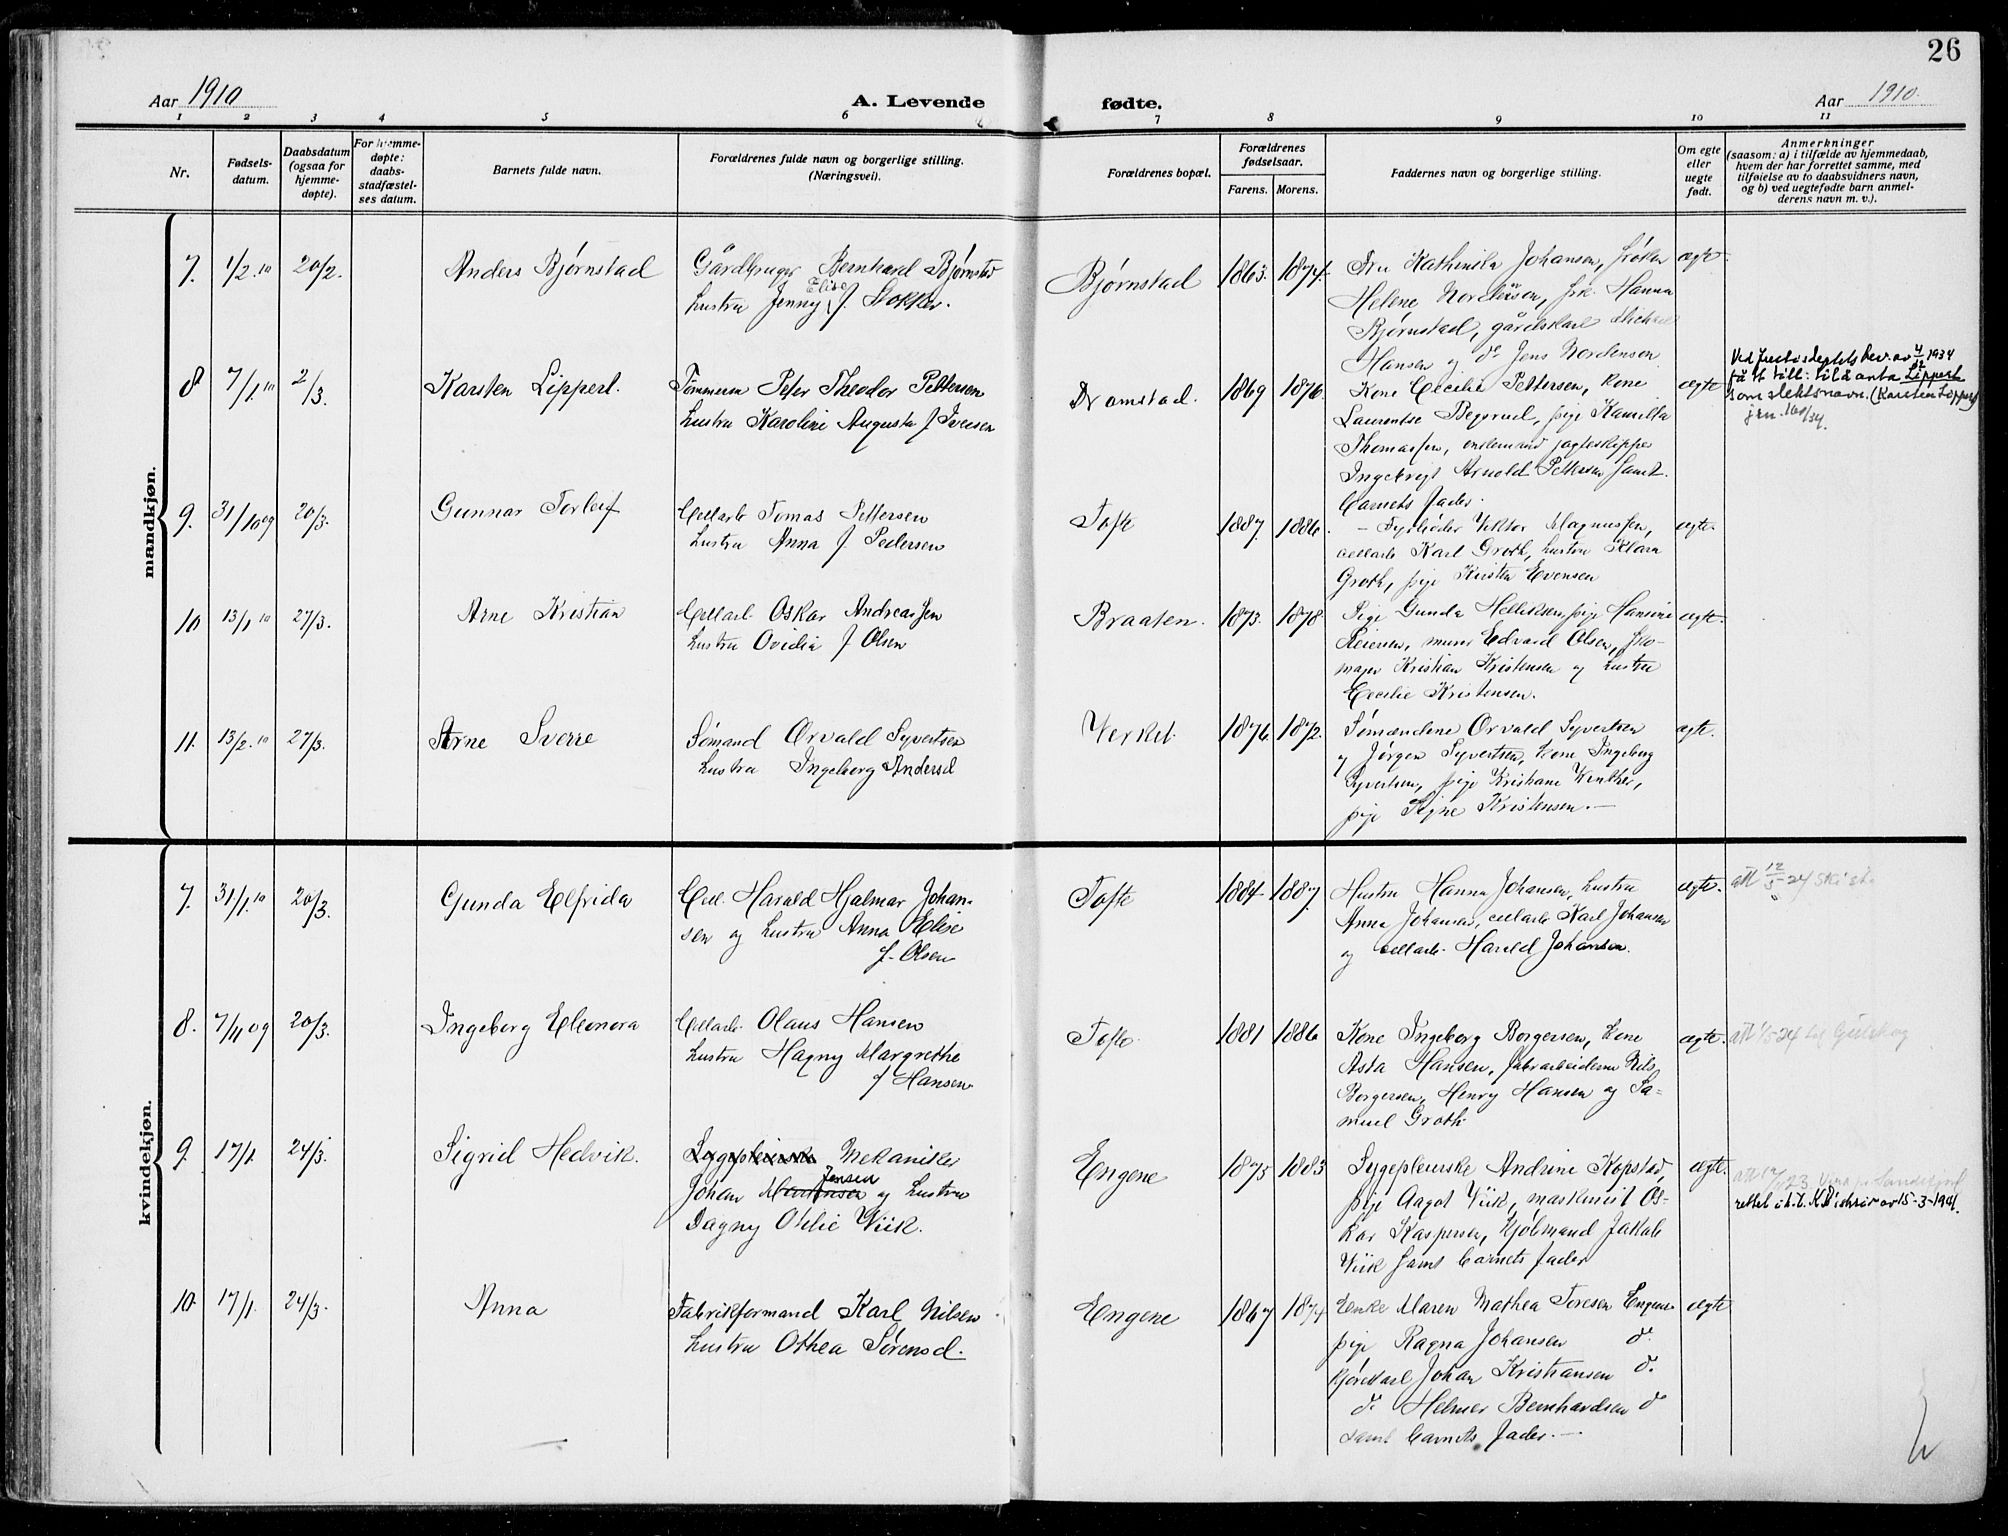 26
Aar 1910
A. Levende
fødte.
Aar 1910.
1 2 3 4 5 6 7 8 9 10 11
Nr.
Fødsels-
datum.
Daabsdatum
(ogsaa for
hjemme-
døpte).
For hjemme-
døpte:
daabs-
stadfæstel-
ses datum.
Barnets fulde navn.
Forældrenes fulde navn og borgerlige stilling.
(Næringsvei).
Forældrenes bopæl.
Forældrenes
fødselsaar.
Farens. Morens.
Faddernes navn og borgerlige stilling.
Om egte
eller
uegte
født.
Anmerkninger
(saasom: a) i tilfælde av hjemmedaab,
hvem der har forrettet samme, med
tilføielse av to daabsvidners navn,
og b) ved uegtefødte barn anmel-
derens navn m. v.).
mandkjøn.
7. 1/2.10 20/2. Anders Bjørnstad
Gårdbruger Bernhard Bjørnstad
Hustru Jenny Elise f. Stokker.
Bjørnstad 1863. 1874.
Fru Kathinka Johansen, frøken
Helene Nordensen, frk. Hanna
Bjørnstad, gårdskarl Michael
Hansen og do Jens Nordensen
ægte
8 7/1.10 2/3. Karsten Lippert.
Tømmerm Peter Theodor Pettersen
Hustru Karoline Augusta f Iversen
Dramstad. 1869 1876.
Kone Cecilie Pettersen, kone
Laurentse Begsrud, pige Kamilla
Thomassen, enkemand jagteskipper
Ingebrigt Arnold Pettersen samt
barnets fader.
ægte
Ved Justisdeptets bev. av 4/12 1934
få tt till. til å anta Lippert
som slektsnavn. (Karsten Lippert)
jrn. 160/34.
9. 31/10 09 20/3. Gunnar Torleif
Cellarb Tomas Pettersen
Hustru Anna f. Pedersen
Tofte 1887. 1886.
Fyrbøder Viktor Magnussen,
cellarb Karl Groth, hustru Klara
Groth, pige Kristen Evensen
ægte.
10 13/1 10 27/3. Arne Kristian
Cellarb. Oskar Andreassen
Hustru Ovidia f Olsen
Braaten. 1873. 1878.
Pige Gunda Helliksen, pige Hansine
Reiersen, murer Edvard Olsen, sko-
mager Kristian Kristensen og hustru
Cecilie Kristensen.
ægte.
11. 13/2.10 27/3. Arne Sverre
Sømand Orvald Syvertsen
Hustru Ingeborg Andersd
Verket 1876. 1872.
Sømændene Orvald Syvertsen
og Jørgen Syvertsen, kone Ingeborg
Syvertsen, pige Kristiane Kinther,
pige Signe Kristensen.
ægte.
kvindekjøn.
7. 31/1.10 20/3. Gunda Elfrida
Cell. Harald Hjalmar Johan-
sen og hustru Anna Elise
f. Olsen
Tofte 1884. 1887.
Hustru Hanna Johansen, hustru
Anna Johansen, cellarb Karl Johansen
og cellarb. Harald Johansen.
ægte.
att 12/5-24
8. 7/11 09 20/3. Ingeborg Eleonora
Cellarb. Olaus Hansen
Hustru Hagny Margrethe
f Hansen
Tofte. 1881 1886
Kone Ingeborg Borgersen, kone
Asta Hansen, fabrarbeiderne Nils
Borgersen, Henry Hansen og Sa-
muel Groth.
ægte.
att 1/5-24 til Gulskog
9. 17/1. 24/3. Sigrid Hedvik.
Sygepleierske Mekaniker
Johan Martinsen Jensen og hustru
Dagny Othlie Wiik.
Engene 1875 1883
Sygepleierske Andrine Kopstad,
pige Aagot Viik, maskinist Os-
kar Kaspersen, Hjólmand Jakob
Viik samt barnets fader
ægte.
rettet i h.t. K.D. skriv av 15-3-1941.
10. 17/1. 24/3. Anna
Fabrikformand Karl Nilsen
Hustru Othea Sørensd.
Engene 1867 1874
Enke Maren Mathea Toresen Engene
pige Ragna Johansen do.
kjørekarl Johan Kristiansen do.
do. Helmer Bernhardsen do
samt barnets fader.
ægte